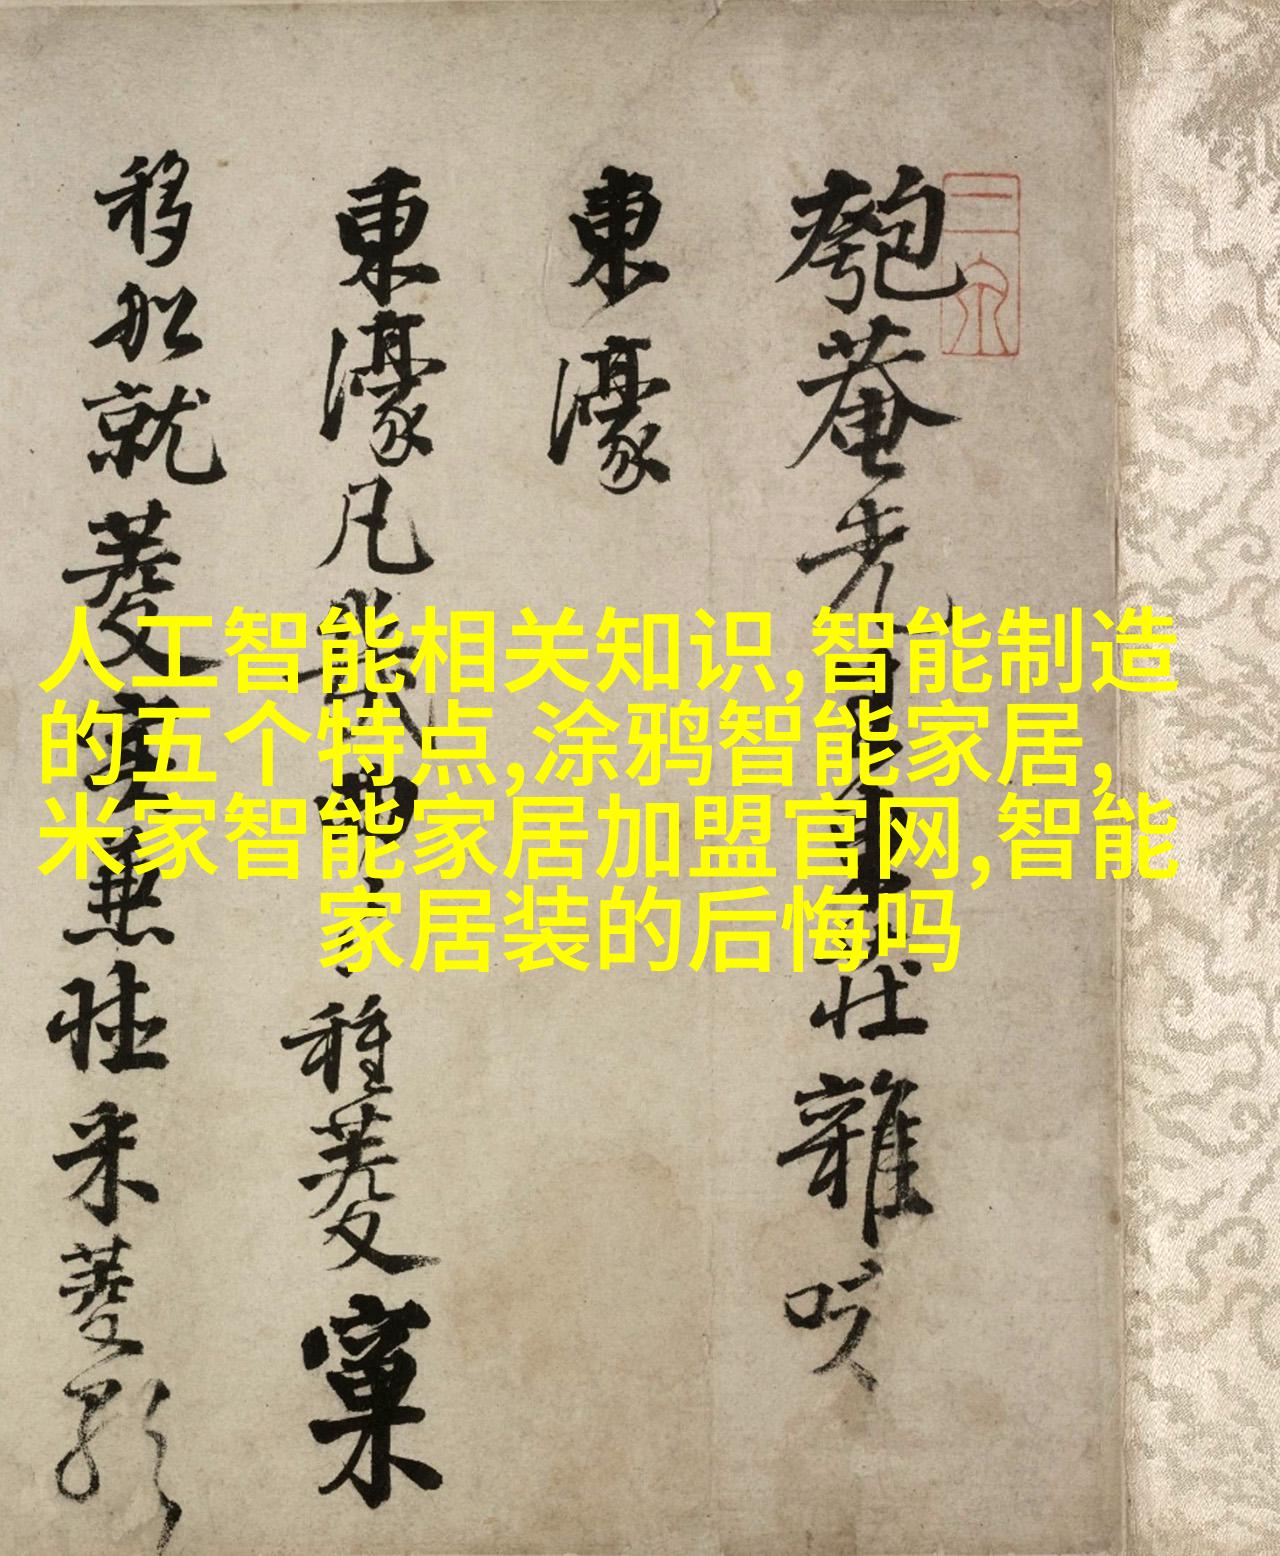 匏菴先生東莊雜咏
東濠
東濠凡幾曲種菱窠
移船就菱實無采菱
人工智能相关知识,智能制造
的五个特点,涂鸦智能家居,
米家智能家居加盟官网,智能
家居装的后悔吗